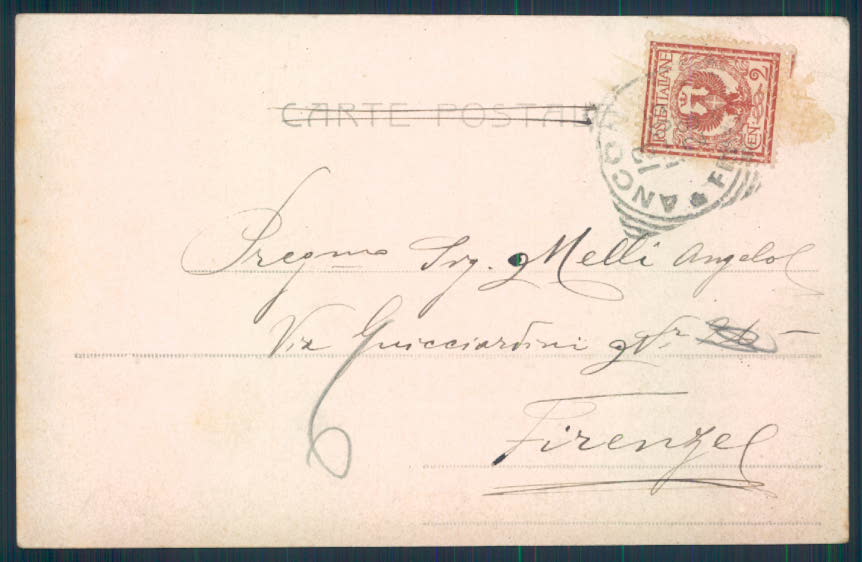 CARTE POSTALE
POSTE ITALIANE
CEN. 2
ANCONA
Pregmo Sig. Melli Angelo
Via Guicciardini Nr
6
Firenze